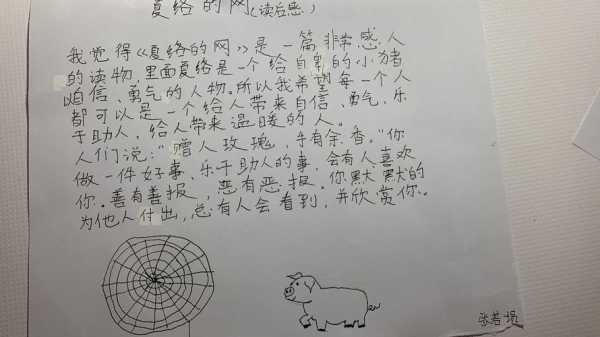 夏络的网(读后感)
我觉得《夏络的网》是一篇非常感人
的读物,里面夏络是一个给自卑的小猪
自信、勇气的人物。所以我希望每一个人
都可以是一个给人带来自信、勇气、乐
于助人,给人带来温暖的人。
人们说:“赠人玫瑰,手有余香。”你
做一件好事、乐于助人的事,会有人喜欢
你。善有善报,恶有恶报。你默默的
为他人付出,总有人会看到,并欣赏你。
张若